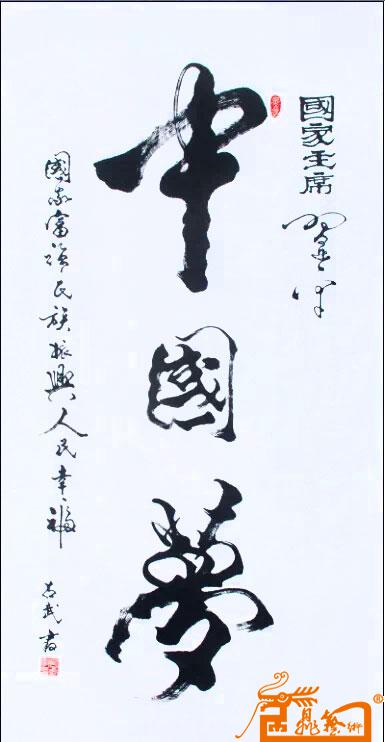 國家主席
中國夢
國家富強民族振興人民幸福
書